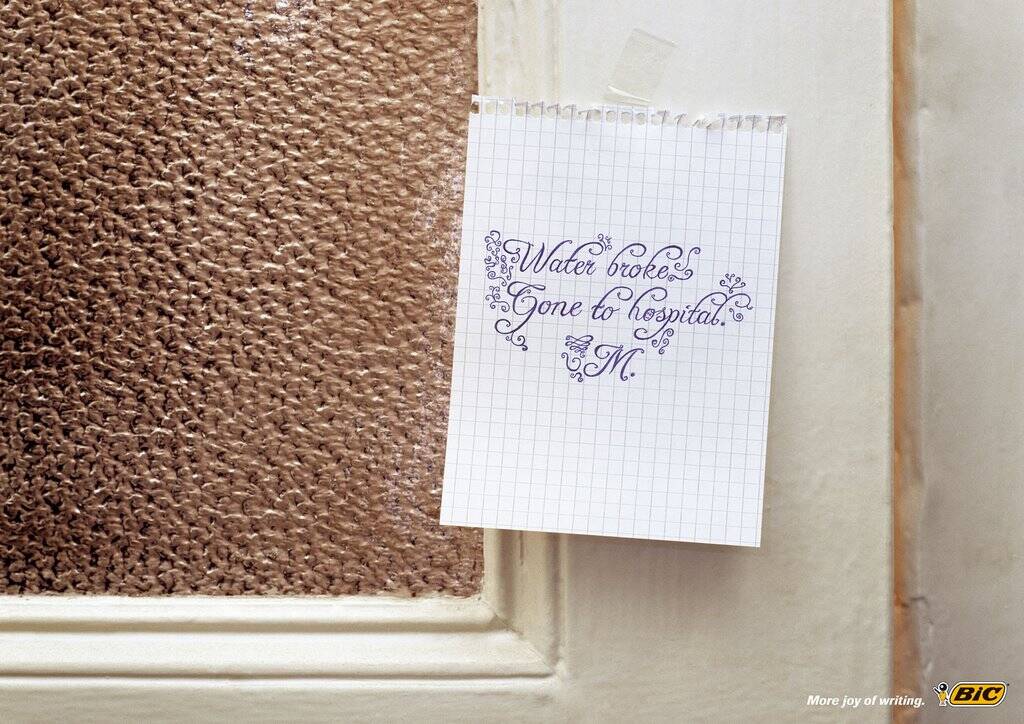 Water broke.
Gone to hospital.
M.
More joy of writing.
BiC